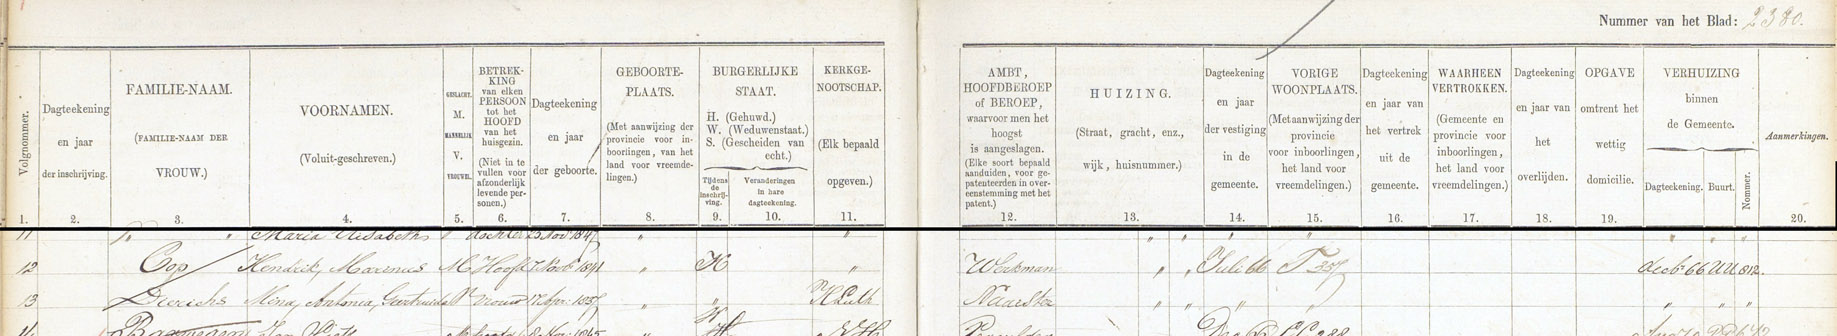 Nummer van het Blad: 2380.
Volgnommer.
1.
Dagteekening
en jaar
der inschrijving.
2.
FAMILIE-NAAM.
(FAMILIE-NAAM DER
VROUW.)
3.
VOORNAMEN.
(Voluit-geschreven.)
4.
GESLACHT.
M.
MANNELIJK
V.
VROUWEL.
5.
BETREK-
KING
van elken
PERSOON
tot het
HOOFD
van het
huisgezin.
(Niet in te
vullen voor
afzonderlijk
levende per-
sonen.)
6.
Dagteekening
en jaar
der geboorte.
7.
GEBOORTE-
PLAATS.
(Met aanwijzing der
provincie voor in-
boorlingen, van het
land voor vreemde-
lingen.)
8.
BURGERLIJKE
STAAT.
H. (Gehuwd.)
W. (Weduwenstaat.)
S. (Gescheiden van
echt.)
Tijdens
de
inschrij-
ving.
9.
Veranderingen
in hare
dagteekening.
10.
KERKGE-
NOOTSCHAP.
(Elk bepaald
opgeven.)
11.
AMBT,
HOOFDBEROEP
of BEROEP,
waarvoor men het
hoogst
is aangeslagen.
(Elke soort bepaald
aanduiden, voor ge-
patenteerden in over-
eenstemming met het
patent.)
12.
HUIZING.
(Straat, gracht, enz.,
wijk, huisnummer.)
13.
Dagteekening
en jaar
der vestiging
in de
gemeente.
14.
VORIGE
WOONPLAATS.
(Met aanwijzing der
provincie
voor inboorlingen,
het land voor
vreemdelingen.)
15.
Dagteekening
en jaar van
het vertrek
uit de
gemeente.
16.
WAARHEEN
VERTROKKEN.
(Gemeente en
provincie voor
inboorlingen,
het land voor
vreemdelingen.)
17.
Dagteekening
en jaar van
het
overlijden.
18.
OPGAVE
omtrent het
wettig
domicilie.
19.
VERHUIZING
binnen
de Gemeente.
Dagteekening.
Buurt.
Nommer.
Aanmerkingen.
20.
11 " " Maria Elisabeth dochter 25 Nov 1847 " "
12 Cop Hendrik, Marinus M Hoofd 1841 " H " Werkman " " Juli 66 T 357 decb 66 UU 812.
13 Dierichs Mina, Antonia, Geertruida V vrouw 17 Apr 1837 " " R Cath Naaister " " " " " " "
14